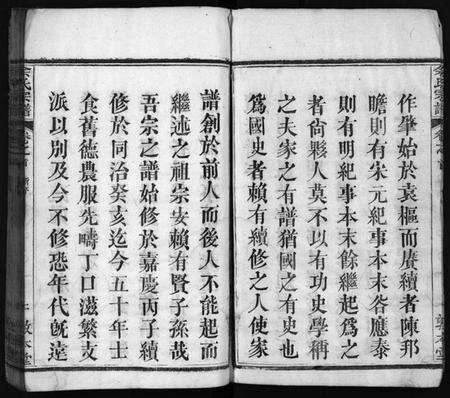 作肇始於袁樞而賡續者陳邦
瞻則有宋元紀事本末谷應泰
則有明紀事本末餘繼起爲之
者尚夥人莫不以有功史學稱
之夫家之有譜猶國之有史也
爲國史者賴有續修之人使家
譜創於前人而後人不能起而
繼述之祖宗安賴有賢子孫哉
吾宗之譜始修於嘉慶丙子續
修於同治癸亥迄今五十年士
食舊德農服先疇丁口滋繁支
派以別及今不修恐年代旣遠
余氏宗譜
卷之首
敦本堂